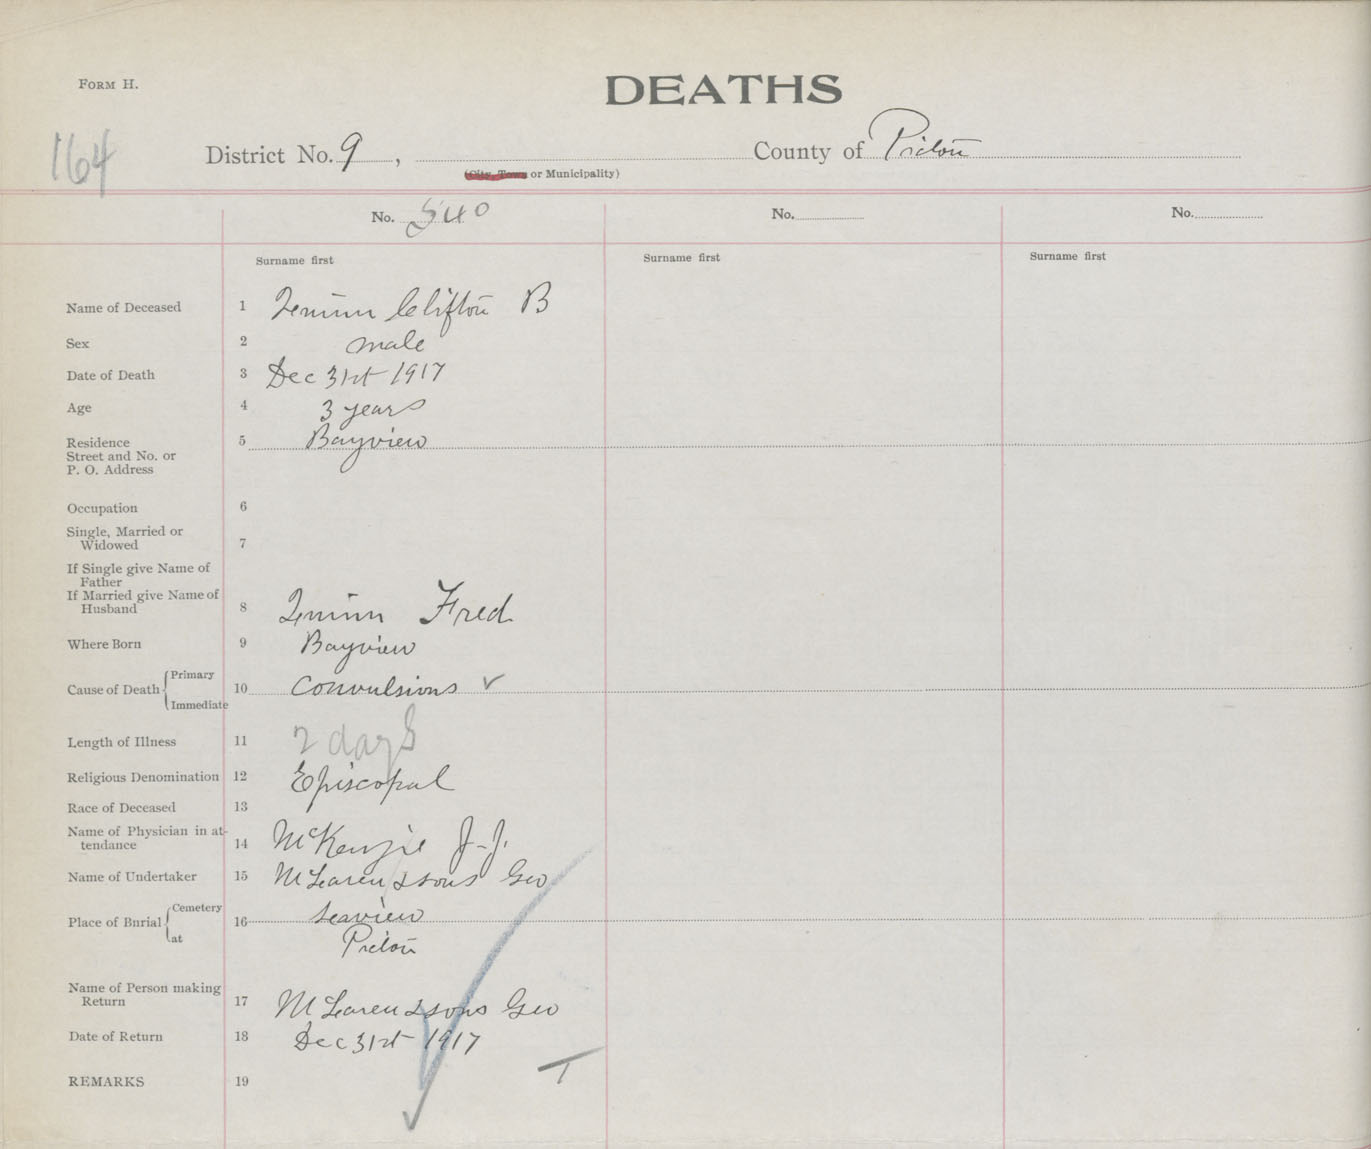 FORM H.
DEATHS
164
District No. 9 , County of Pictou
(City, Town or Municipality)
No. 540 No. No.
Surname first Surname first Surname first
Name of Deceased 1 Quinn Clifton B
Sex 2 male
Date of Death 3 Dec 31st 1917
Age 4 3 years
Residence 5 Bayview
Street and No. or
P. O. Address
Occupation 6
Single, Married or
Widowed 7
If Single give Name of
Father
If Married give Name of
Husband 8 Quinn Fred
Where Born 9 Bayview
Cause of Death Primary
10 Convulsions ✓
Immediate
Length of Illness 11 2 days
Religious Denomination 12 Episcopal
Race of Deceased 13
Name of Physician in at-
tendance 14 McKenzie J. J.
Name of Undertaker 15 McLaren & sons Geo
Place of Burial Cemetery
16 Seaview
at Pictou
Name of Person making
Return 17 McLaren & sons Geo
Date of Return 18 Dec 31st 1917
REMARKS 19